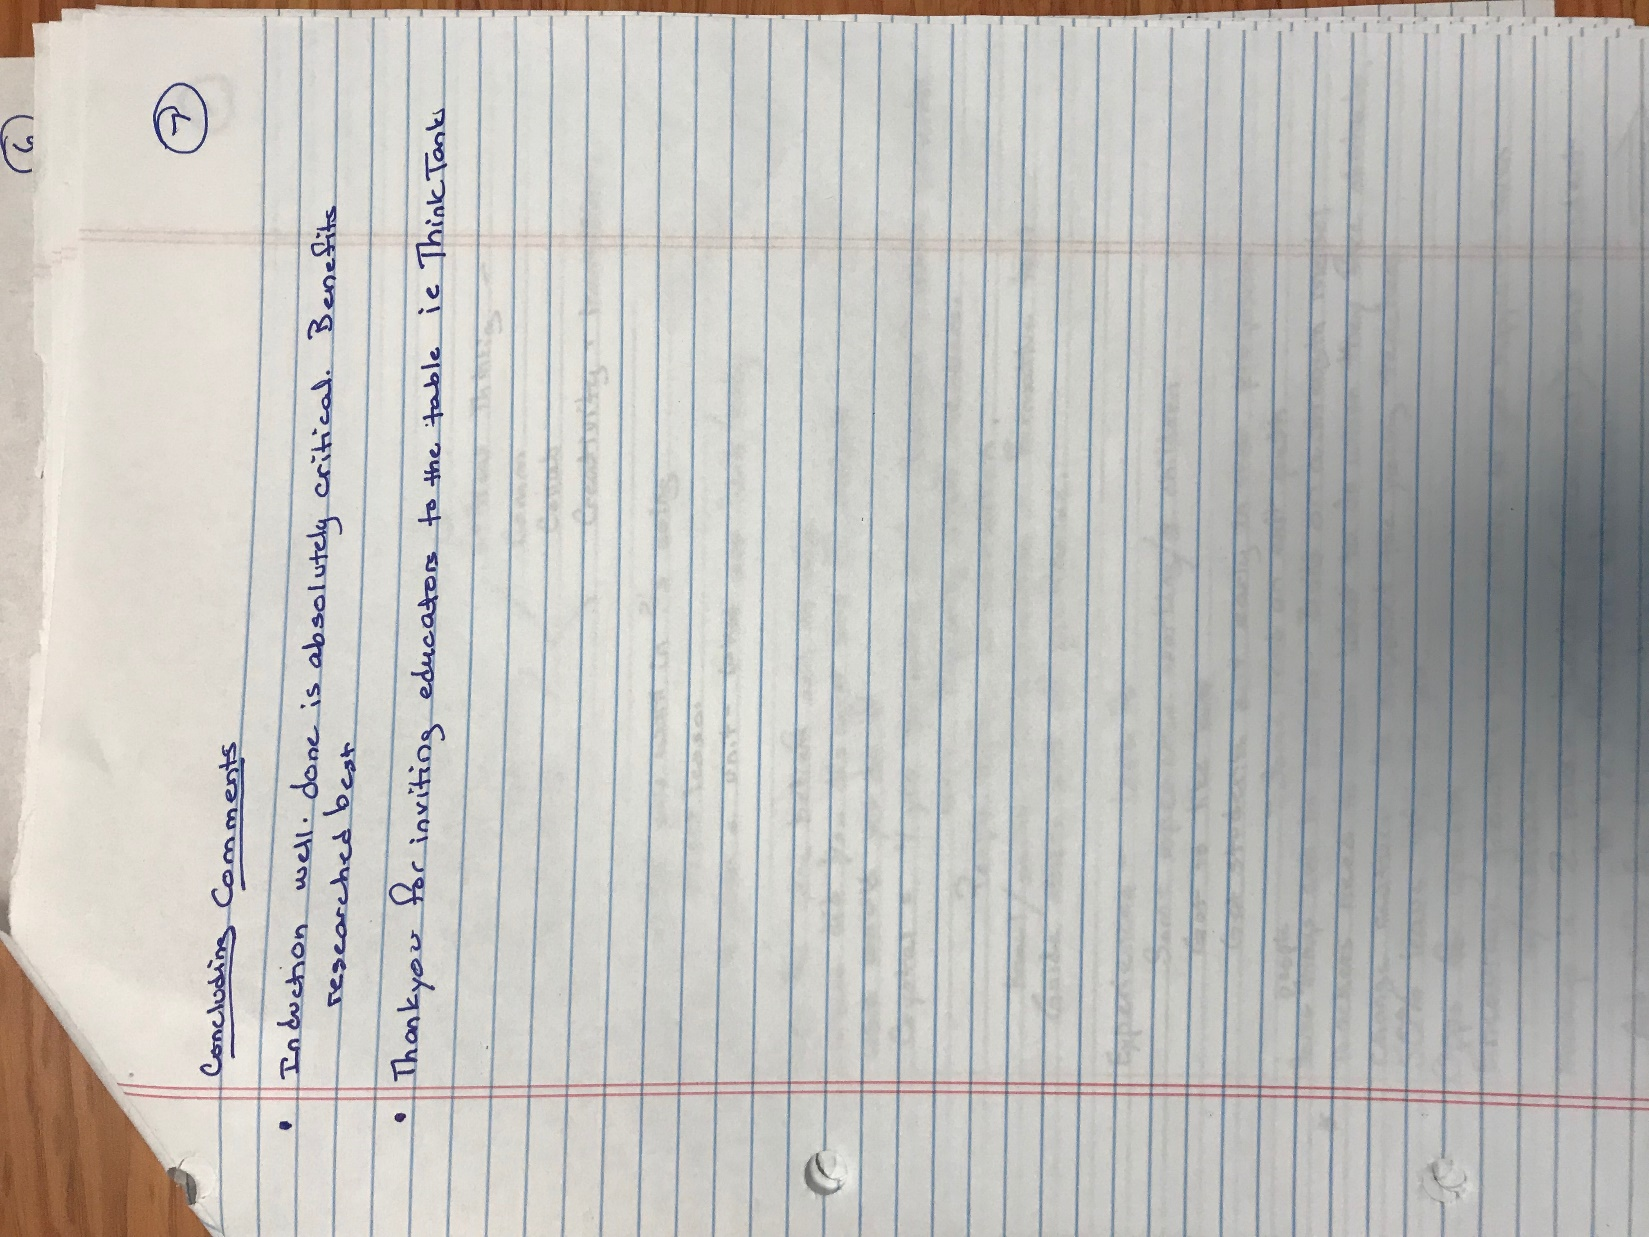 7
Concluding Comments
• Induction well. done is absolutely critical. Benefits
researched best
• Thankyou for inviting educators to the table ie Think Tanks
6